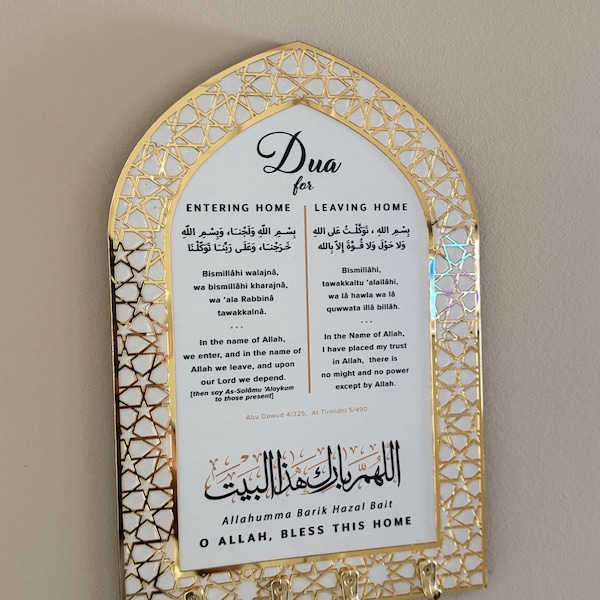 Dua
for
ENTERING HOME
بِسْمِ اللَّهِ وَلَجْنَا، وَبِسْمِ اللَّهِ
خَرَجْنَا، وَعَلَى رَبِّنَا تَوَكَّلْنَا
Bismillâhi walajnâ,
wa bismillâhi kharajnâ,
wa 'ala Rabbinâ
tawakkalnâ.
In the name of Allah,
we enter, and in the name of
Allah we leave, and upon
our Lord we depend.
[then say As-Salâmu 'Alaykum
to those present]
LEAVING HOME
بِسْمِ اللهِ ، تَوَكَّلْتُ عَلَى اللهِ
وَلا حَوْلَ وَلا قُوَّةَ إِلاَّ بِالله
Bismillâhi,
tawakkaltu 'alallâhi,
wa lâ hawla wa lâ
quwwata illâ billâh.
In the Name of Allah,
I have placed my trust
in Allah, there is
no might and no power
except by Allah.
Abu Dawud 4/325, At-Tirmidhi 5/490
اللهم بارك هذا البيت
Allahumma Barik Hazal Bait
O ALLAH, BLESS THIS HOME